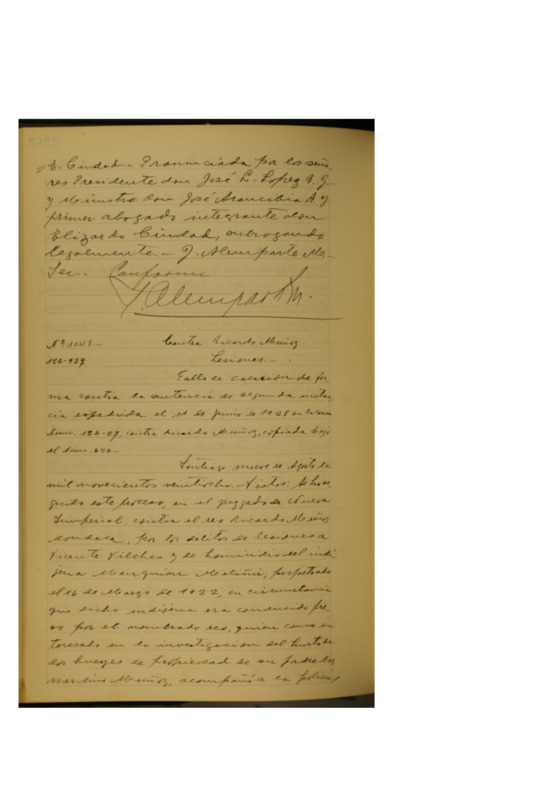 E. Ciudad.- Pronunciada por los seño-
res Presidente don José L. Lopez A. G.
y Ministro don José Arancibia A. y
primer abogado integrante don
Elizardo Ciudad, subrogando
legalmente.- J. Alemparte M.-
Sec.- Conforme
J. Alemparte M.
Nº 1048.-
Contra Ricardo Muñoz.
186-927
Lesiones.-
Fallo de casacion de for-
ma contra la sentencia de segunda instan-
cia expedida el 11 de Junio de 1928 en la causa
núm. 186-27, contra Ricardo Muñoz, copiada bajo
el núm.
Santiago, nueve de Agosto de
mil novecientos veintiocho.- Vistos: Se ha se-
guido este proceso, en el juzgado de Nueva
Imperial contra el reo Ricardo Muñoz
por los delitos de lesiones a
Vicente Vilches y de homicidio del indí-
jena, perpetrado
el 16 de Marzo de 1922, en circunstancia
que dicho indíjena era conducido pre-
so por el nombrado reo, quien como in-
teresado en la investigacion del hurto de
dos bueyes de propiedad de su padre don
Muñoz, acompañó a la policía